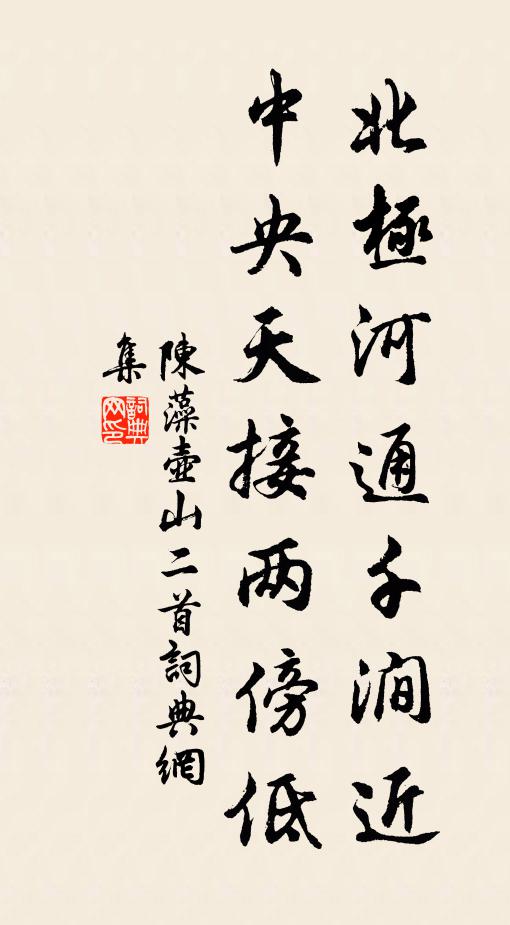 北極河通千澗近
中央天接两傍低
陳藻壺山二首詞典網
集
詞典
网印